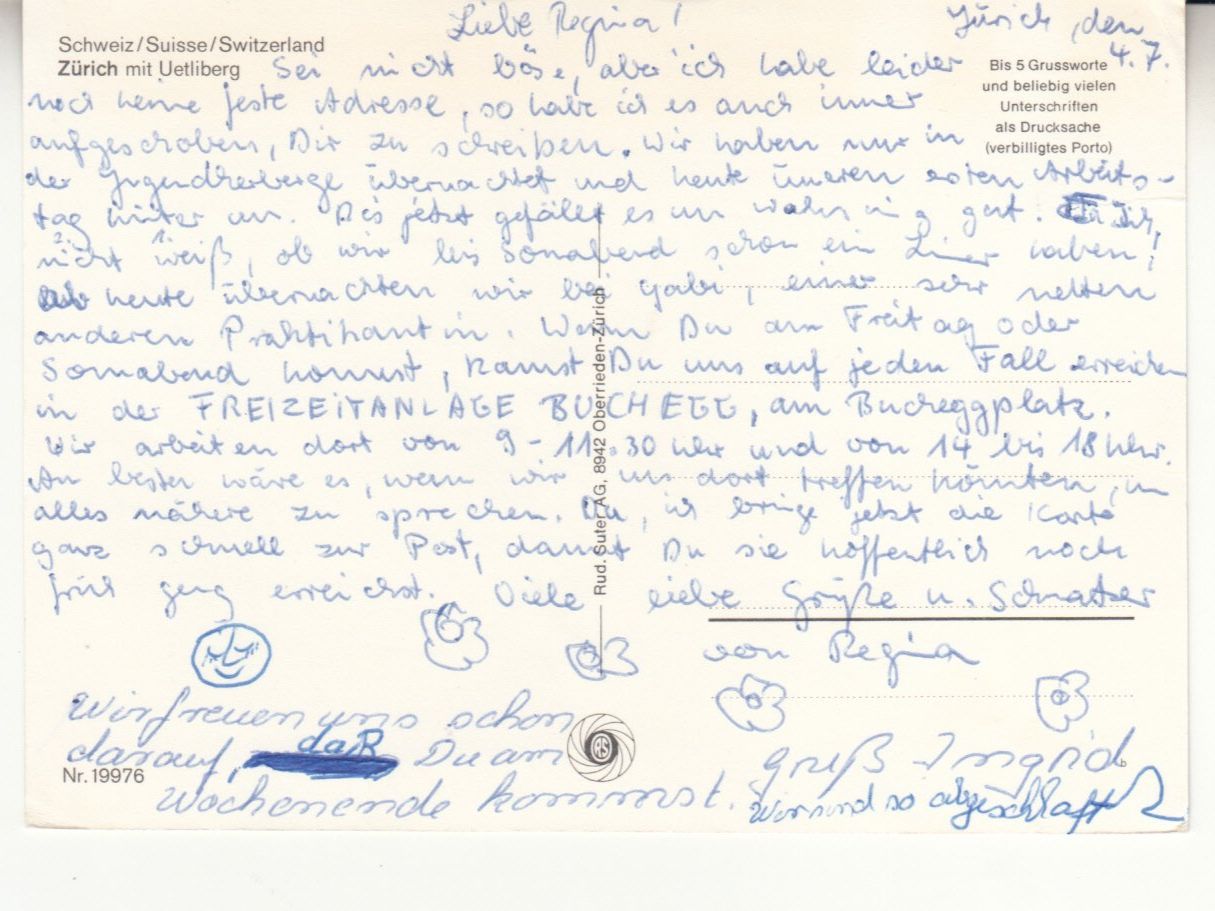 Schweiz/Suisse/Switzerland
Zürich mit Uetliberg
Bis 5 Grussworte
und beliebig vielen
Unterschriften
als Drucksache
(verbilligtes Porto)
Liebe Regina!
Zürich, den 4.7.
Sei nicht böse, aber ich habe leider
noch keine feste Adresse, so habe ich es auch immer
aufgeschoben, Dir zu schreiben. Wir haben nur in
der Jugendherberge übernachtet und heute unseren ersten Arbeits-
tag hinter uns. Bis jetzt gefällt es uns wahnsinnig gut. Ich,
2. nicht 1. weiß, ob wir bis Sonnabend schon ein haben,
heute übernachten wir bei Gabi, einer sehr netten
anderen Praktikantin. Wenn Du am Freitag oder
Sonnabend kommst, kannst Du uns auf jeden Fall erreichen
in der FREIZEITANLAGE BUCHEGG, am Bucheggplatz.
Wir arbeiten dort von 9-11.30 Uhr und von 14 bis 18 Uhr.
Am besten wäre es, wenn wir uns dort treffen könnten, um
alles nähere zu sprechen. Du, ich bringe jetzt die Karte
ganz schnell zur Post, damit Du sie hoffentlich noch
früh genug erreichst. Viele liebe Grüße u. Schmatzer
von Regina
Wir freuen uns schon
darauf, daß Du am
Wochenende kommst.
Gruß Ingrid
Wir sind so abgeschlafft
Nr. 19976
Rud. Suter AG, 8942 Oberrieden-Zürich
RS